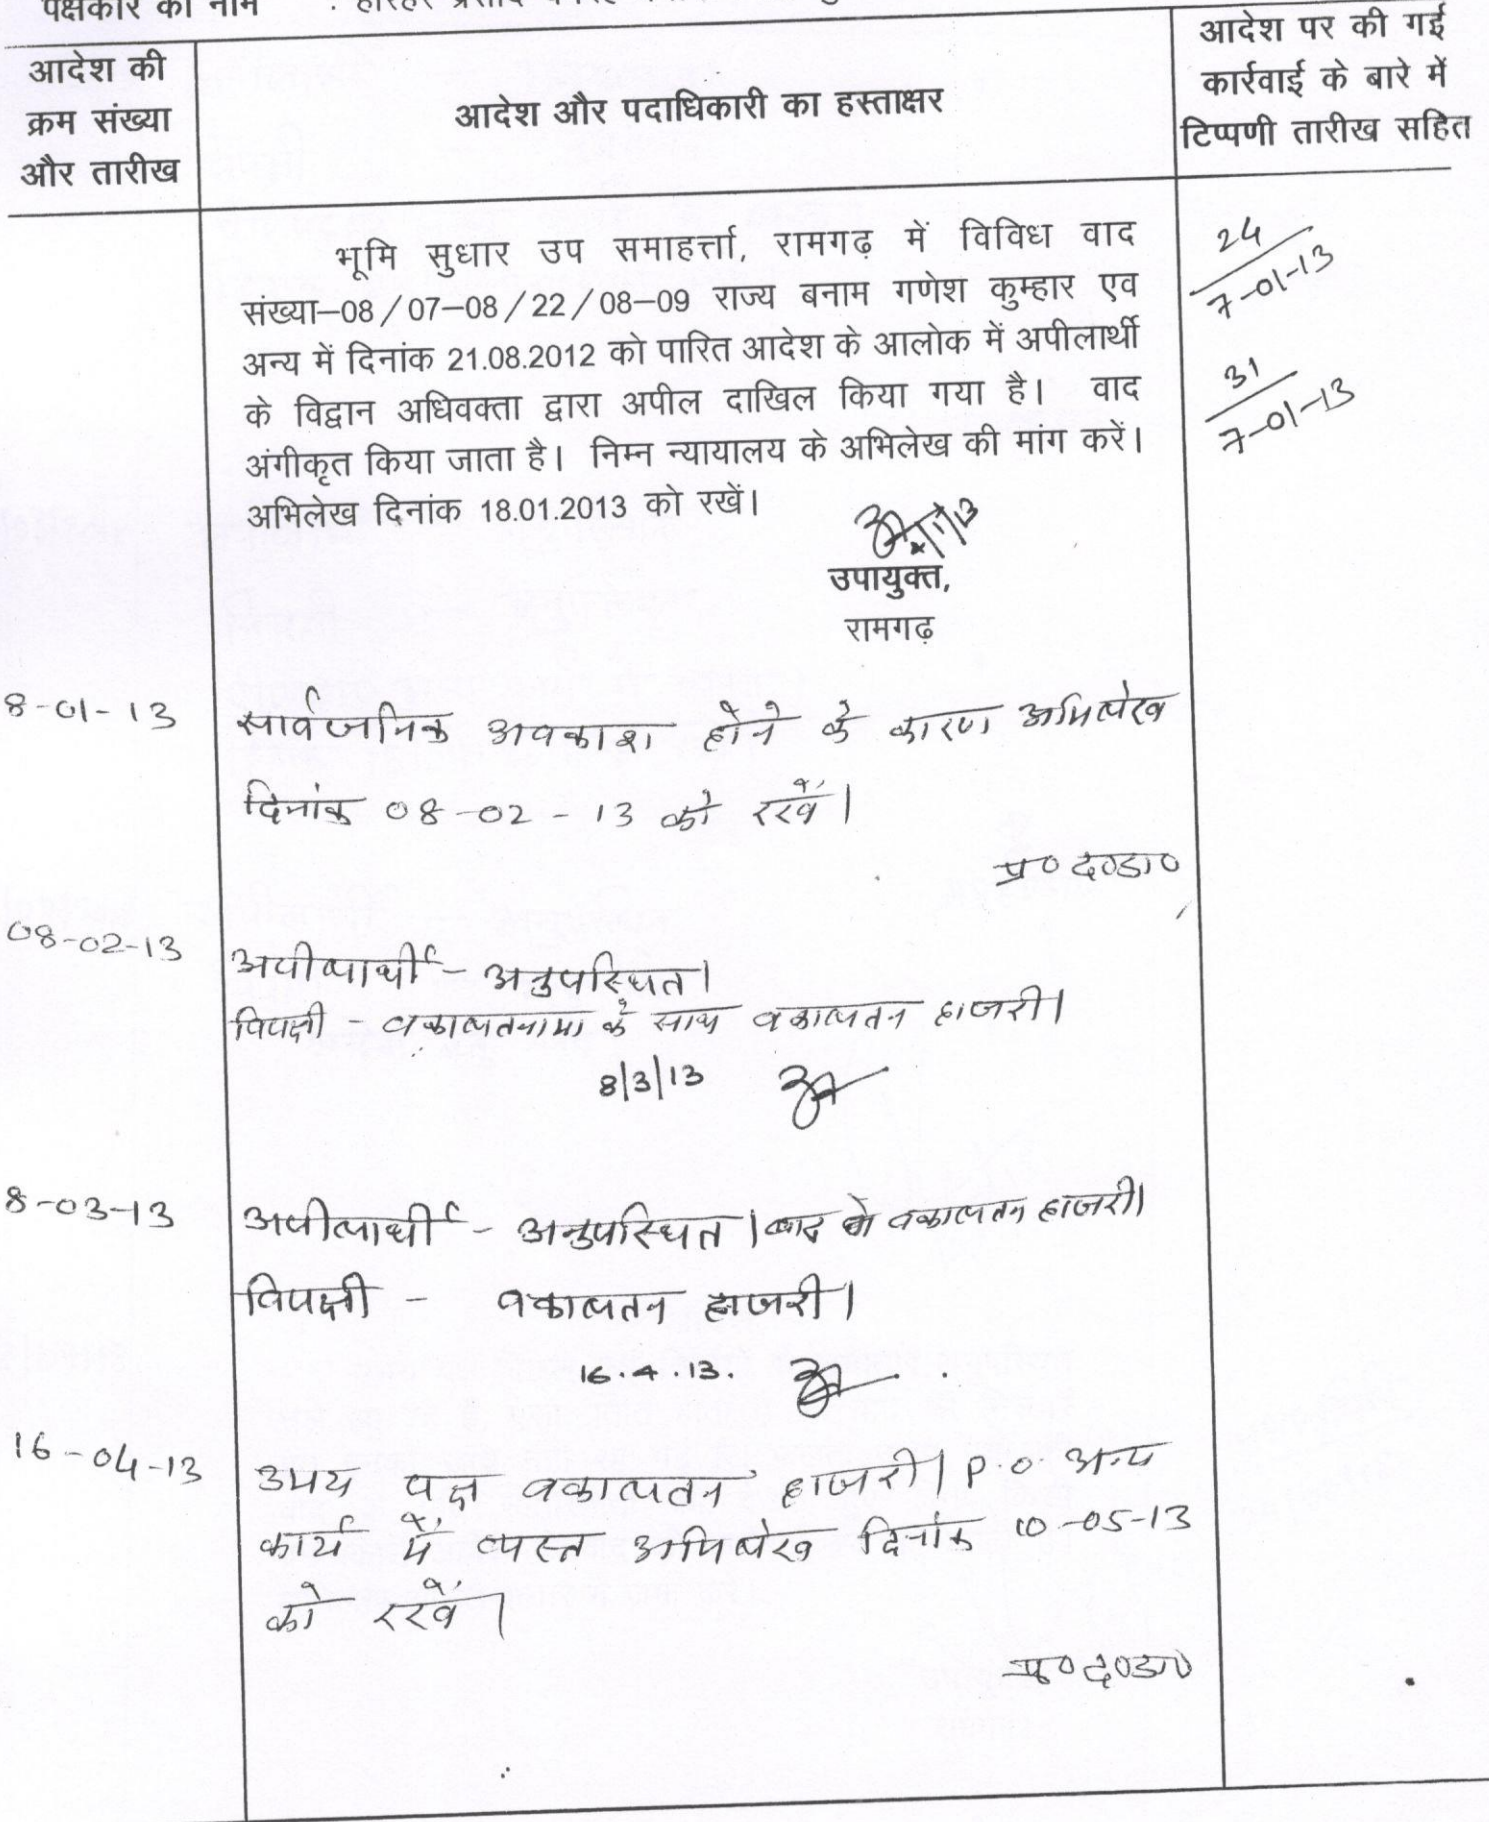 पक्षकार का नाम :
आदेश की
क्रम संख्या
और तारीख
आदेश और पदाधिकारी का हस्ताक्षर
आदेश पर की गई
कार्रवाई के बारे में
टिप्पणी तारीख सहित
भूमि सुधार उप समाहर्त्ता, रामगढ़ में विविध वाद
संख्या–08/07–08/22/08–09 राज्य बनाम गणेश कुम्हार एव
अन्य में दिनांक 21.08.2012 को पारित आदेश के आलोक में अपीलार्थी
के विद्वान अधिवक्ता द्वारा अपील दाखिल किया गया है। वाद
अंगीकृत किया जाता है। निम्न न्यायालय के अभिलेख की मांग करें।
अभिलेख दिनांक 18.01.2013 को रखें।
उपायुक्त,
रामगढ़
24
7-01-13
31
7-01-13
8-01-13
सार्वजनिक अवकाश होने के कारण अभिलेख
दिनांक 08-02-13 को रखें।
प्र० द०डा०
08-02-13
अपीलार्थी - अनुपस्थित।
विपक्षी - वकालतनामा के साथ वकालतन हाजरी।
8/3/13
8-03-13
अपीलार्थी - अनुपस्थित। बाद में वकालतन हाजरी।
विपक्षी - वकालतन हाजरी।
16.4.13.
16-04-13
उभय पक्ष वकालतन हाजरी। P.O. अन्य
कार्य में व्यस्त अभिलेख दिनांक 10-05-13
को रखें।
प्र०द०डा०